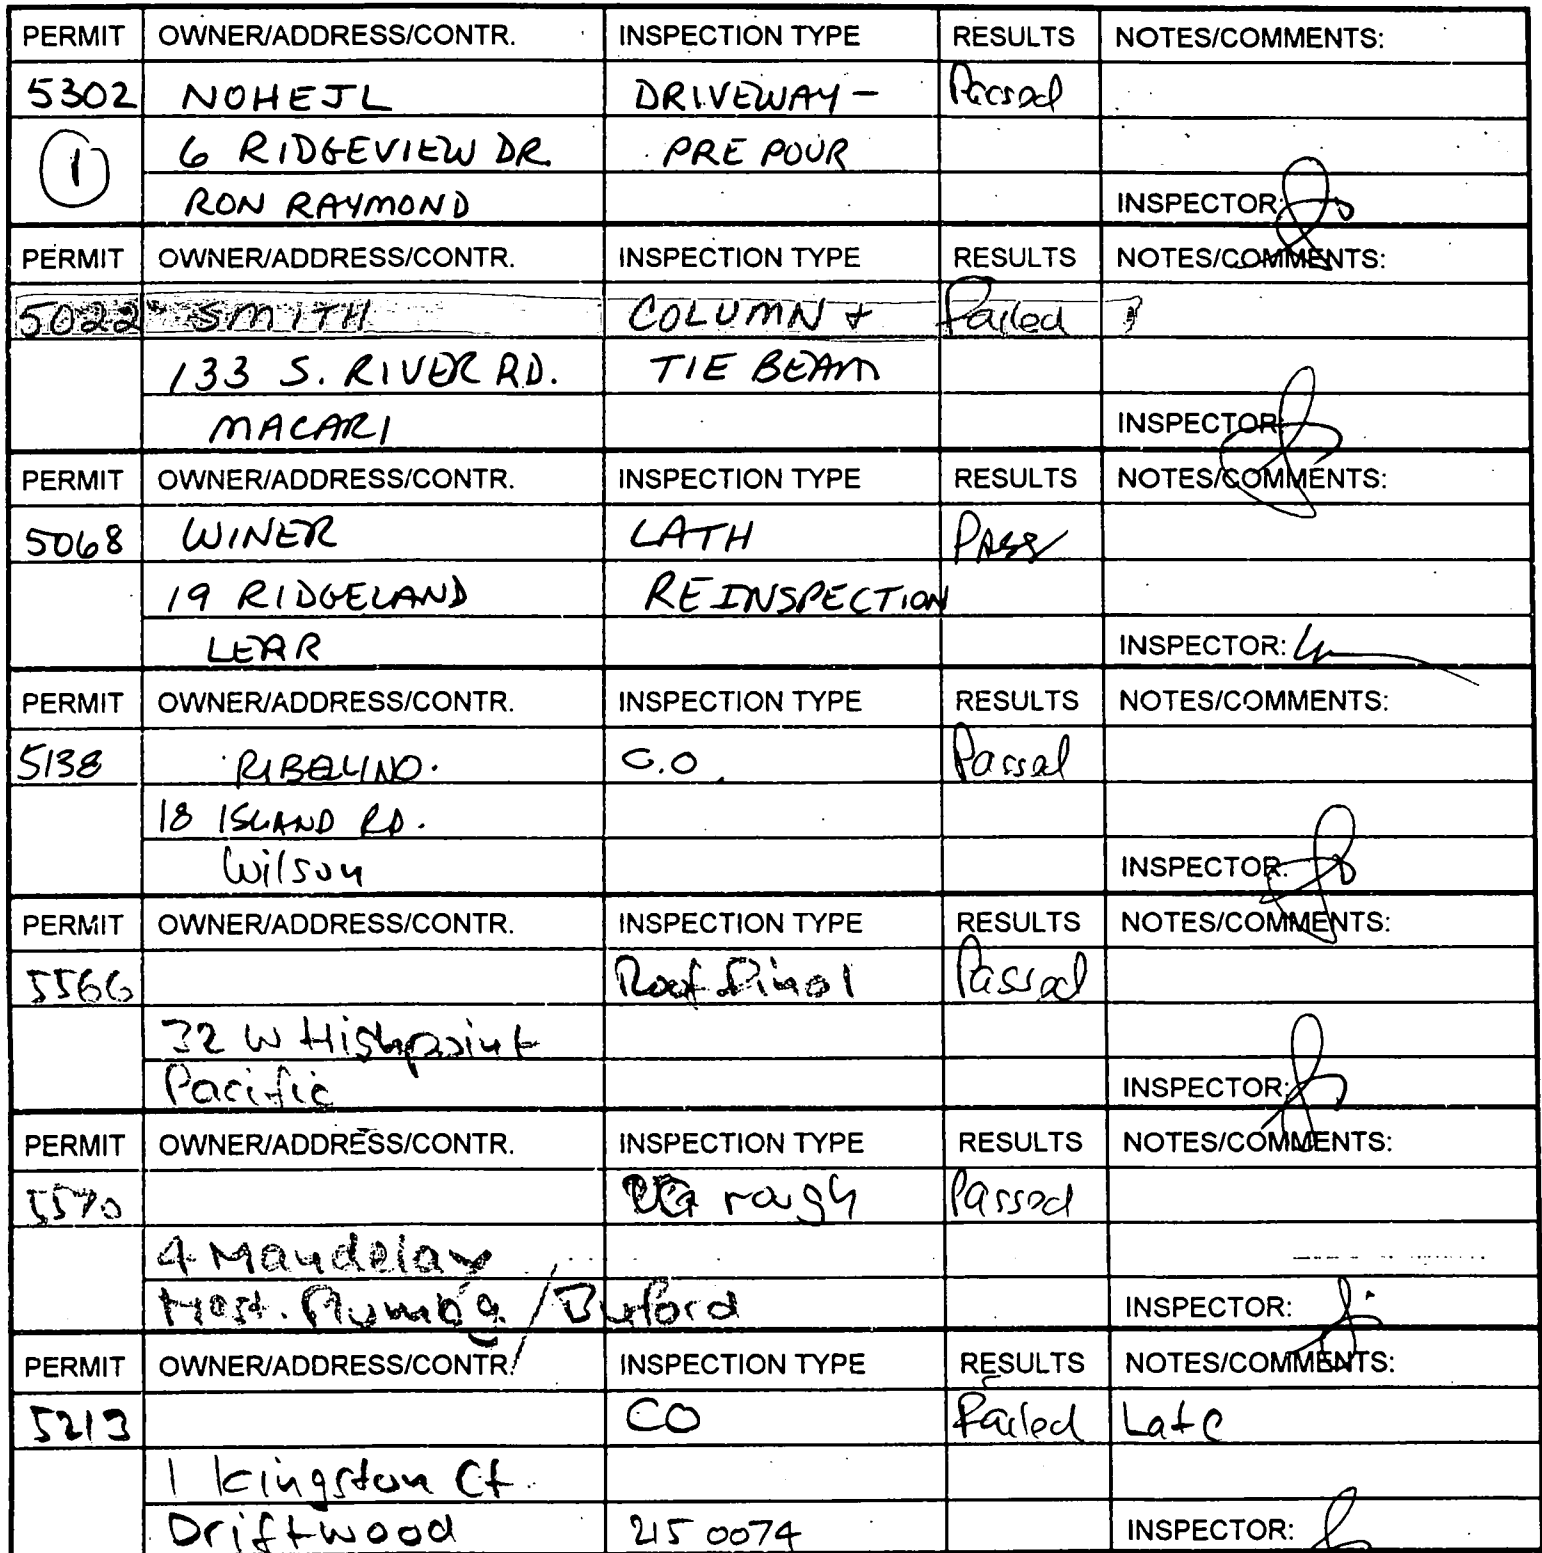 PERMIT OWNER/ADDRESS/CONTR. INSPECTION TYPE RESULTS NOTES/COMMENTS:
5302 NOHEJL DRIVEWAY- Passed
1 6 RIDGEVIEW DR. PRE POUR
RON RAYMOND INSPECTOR:
PERMIT OWNER/ADDRESS/CONTR. INSPECTION TYPE RESULTS NOTES/COMMENTS:
5022 SMITH COLUMN + Failed
133 S. RIVER RD. TIE BEAM
MACARI INSPECTOR:
PERMIT OWNER/ADDRESS/CONTR. INSPECTION TYPE RESULTS NOTES/COMMENTS:
5068 WINER LATH Pass
19 RIDGELAND REINSPECTION
LEAR INSPECTOR:
PERMIT OWNER/ADDRESS/CONTR. INSPECTION TYPE RESULTS NOTES/COMMENTS:
5138 RIBELLINO. C.O. Passed
18 ISLAND RD.
Wilson INSPECTOR:
PERMIT OWNER/ADDRESS/CONTR. INSPECTION TYPE RESULTS NOTES/COMMENTS:
5566 Roof Final Passed
32 W Highpoint
Pacific INSPECTOR:
PERMIT OWNER/ADDRESS/CONTR. INSPECTION TYPE RESULTS NOTES/COMMENTS:
5570 UG rough Passed
4 Mandelay
Mast. Plumb'g / Buford INSPECTOR:
PERMIT OWNER/ADDRESS/CONTR. INSPECTION TYPE RESULTS NOTES/COMMENTS:
5213 CO Failed Late
1 Kingston Ct.
Driftwood 215 0074 INSPECTOR: